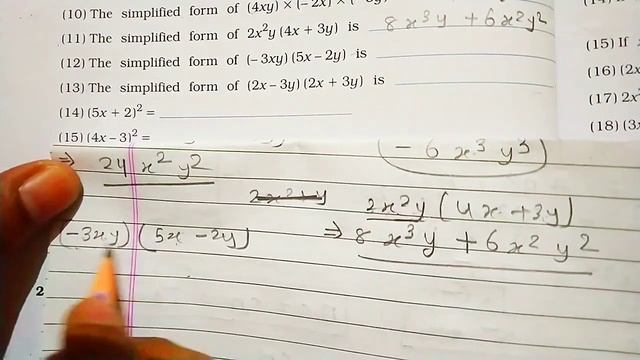 (10) The simplified form of (4xy) × (−2x) ×
(11) The simplified form of 2x²y (4x + 3y) is 8x³y + 6x²y²
(12) The simplified form of (−3xy) (5x − 2y) is
(13) The simplified form of (2x − 3y) (2x + 3y) is
(14) (5x + 2)² =
(15) (4x − 3)² =
(15) If
(16) (2x
(17) 2x
(18) (3
⇒ 24 x² y²
− 6 x³ y³
2x²y (4x + 3y)
(−3xy) (5x − 2y)
⇒ 8 x³y + 6x² y²
2